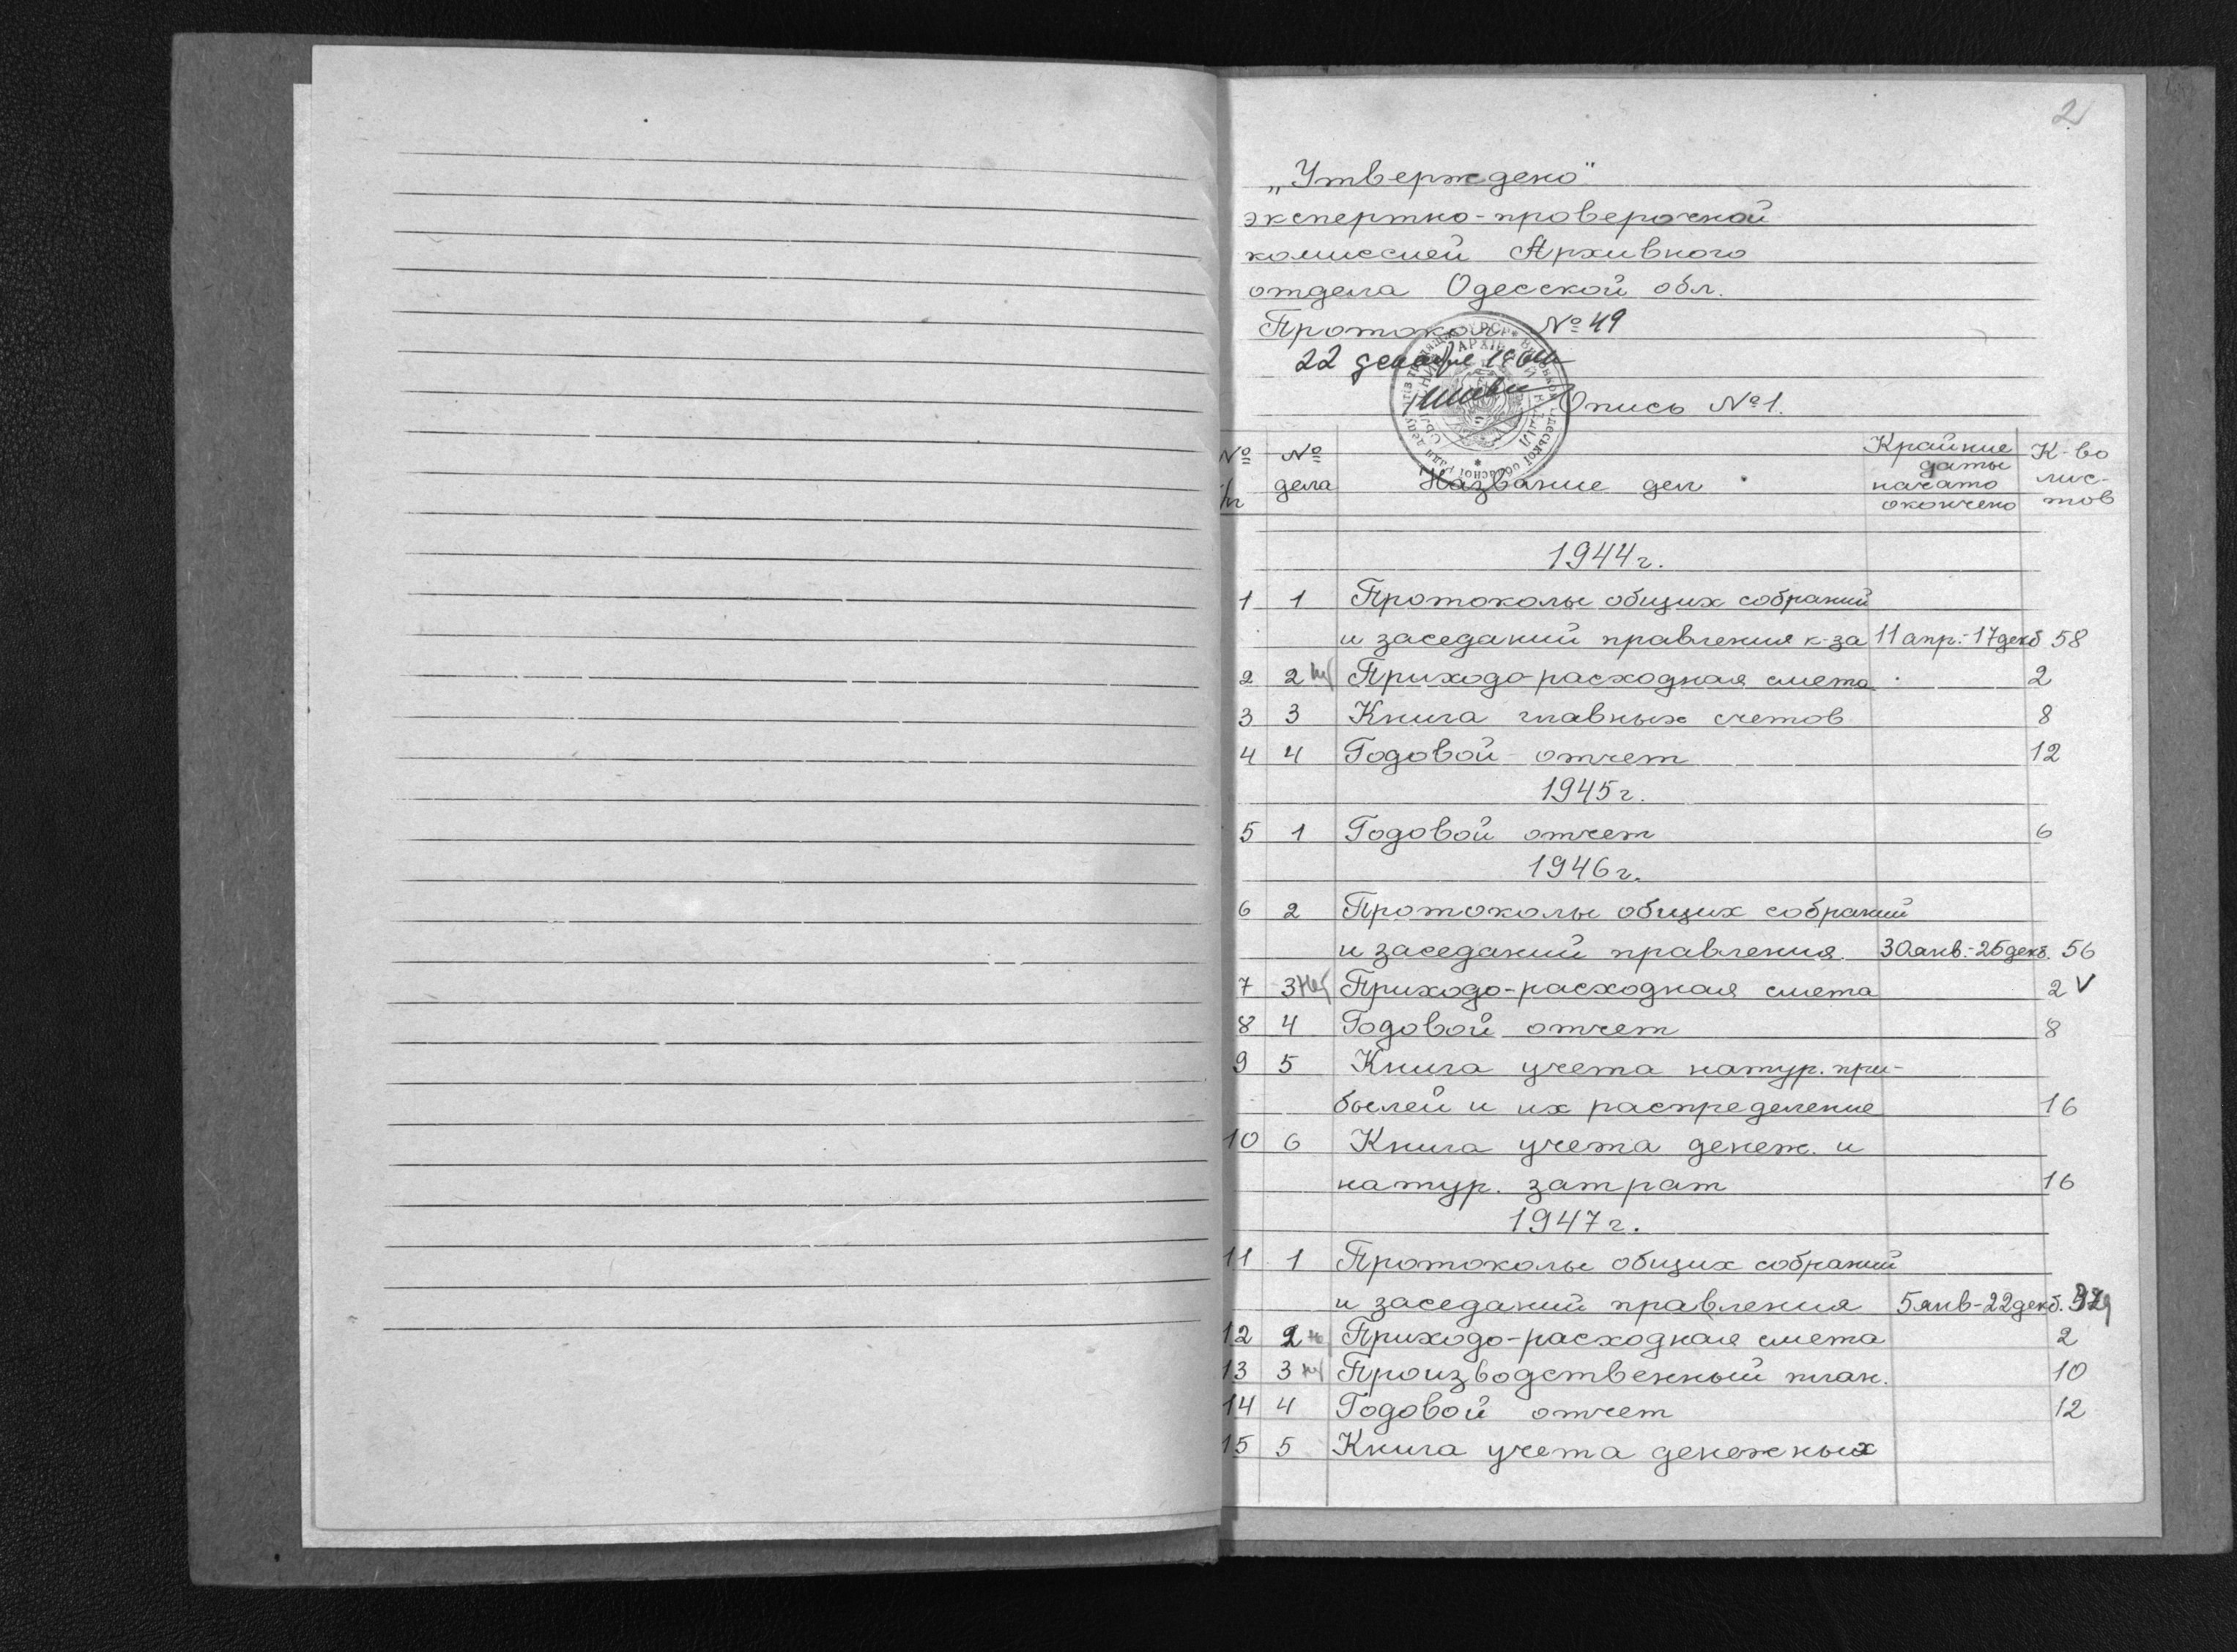 2
„Утверждено"
экспертно-проверочной
комиссией Архивного
отдела Одесской обл.
Протокол №49
22 декабря
Опись №1.
№ № Крайние К-во
даты
дела Название дел начато лис-
окончено тов
1944г.
1 1 Протоколы общих собраний
и заседаний правления к-за 11 апр.-17декб 58
2 2 Приходо-расходная смета 2
3 3 Книга главных счетов 8
4 4 Годовой отчет 12
1945г.
5 1 Годовой отчет 6
1946г.
6 2 Протоколы общих собраний
и заседаний правления 30янв.-25декб. 56
7 3 Приходо-расходная смета 2 V
8 4 Годовой отчет 8
9 5 Книга учета натур. при-
былей и их распределение 16
10 6 Книга учета денеж. и
натур. затрат 16
1947г.
11 1 Протоколы общих собраний
и заседаний правления 5янв-22декб.
12 2 Приходо-расходная смета 2
13 3 Производственный план. 10
14 4 Годовой отчет 12
15 5 Книга учета денежных